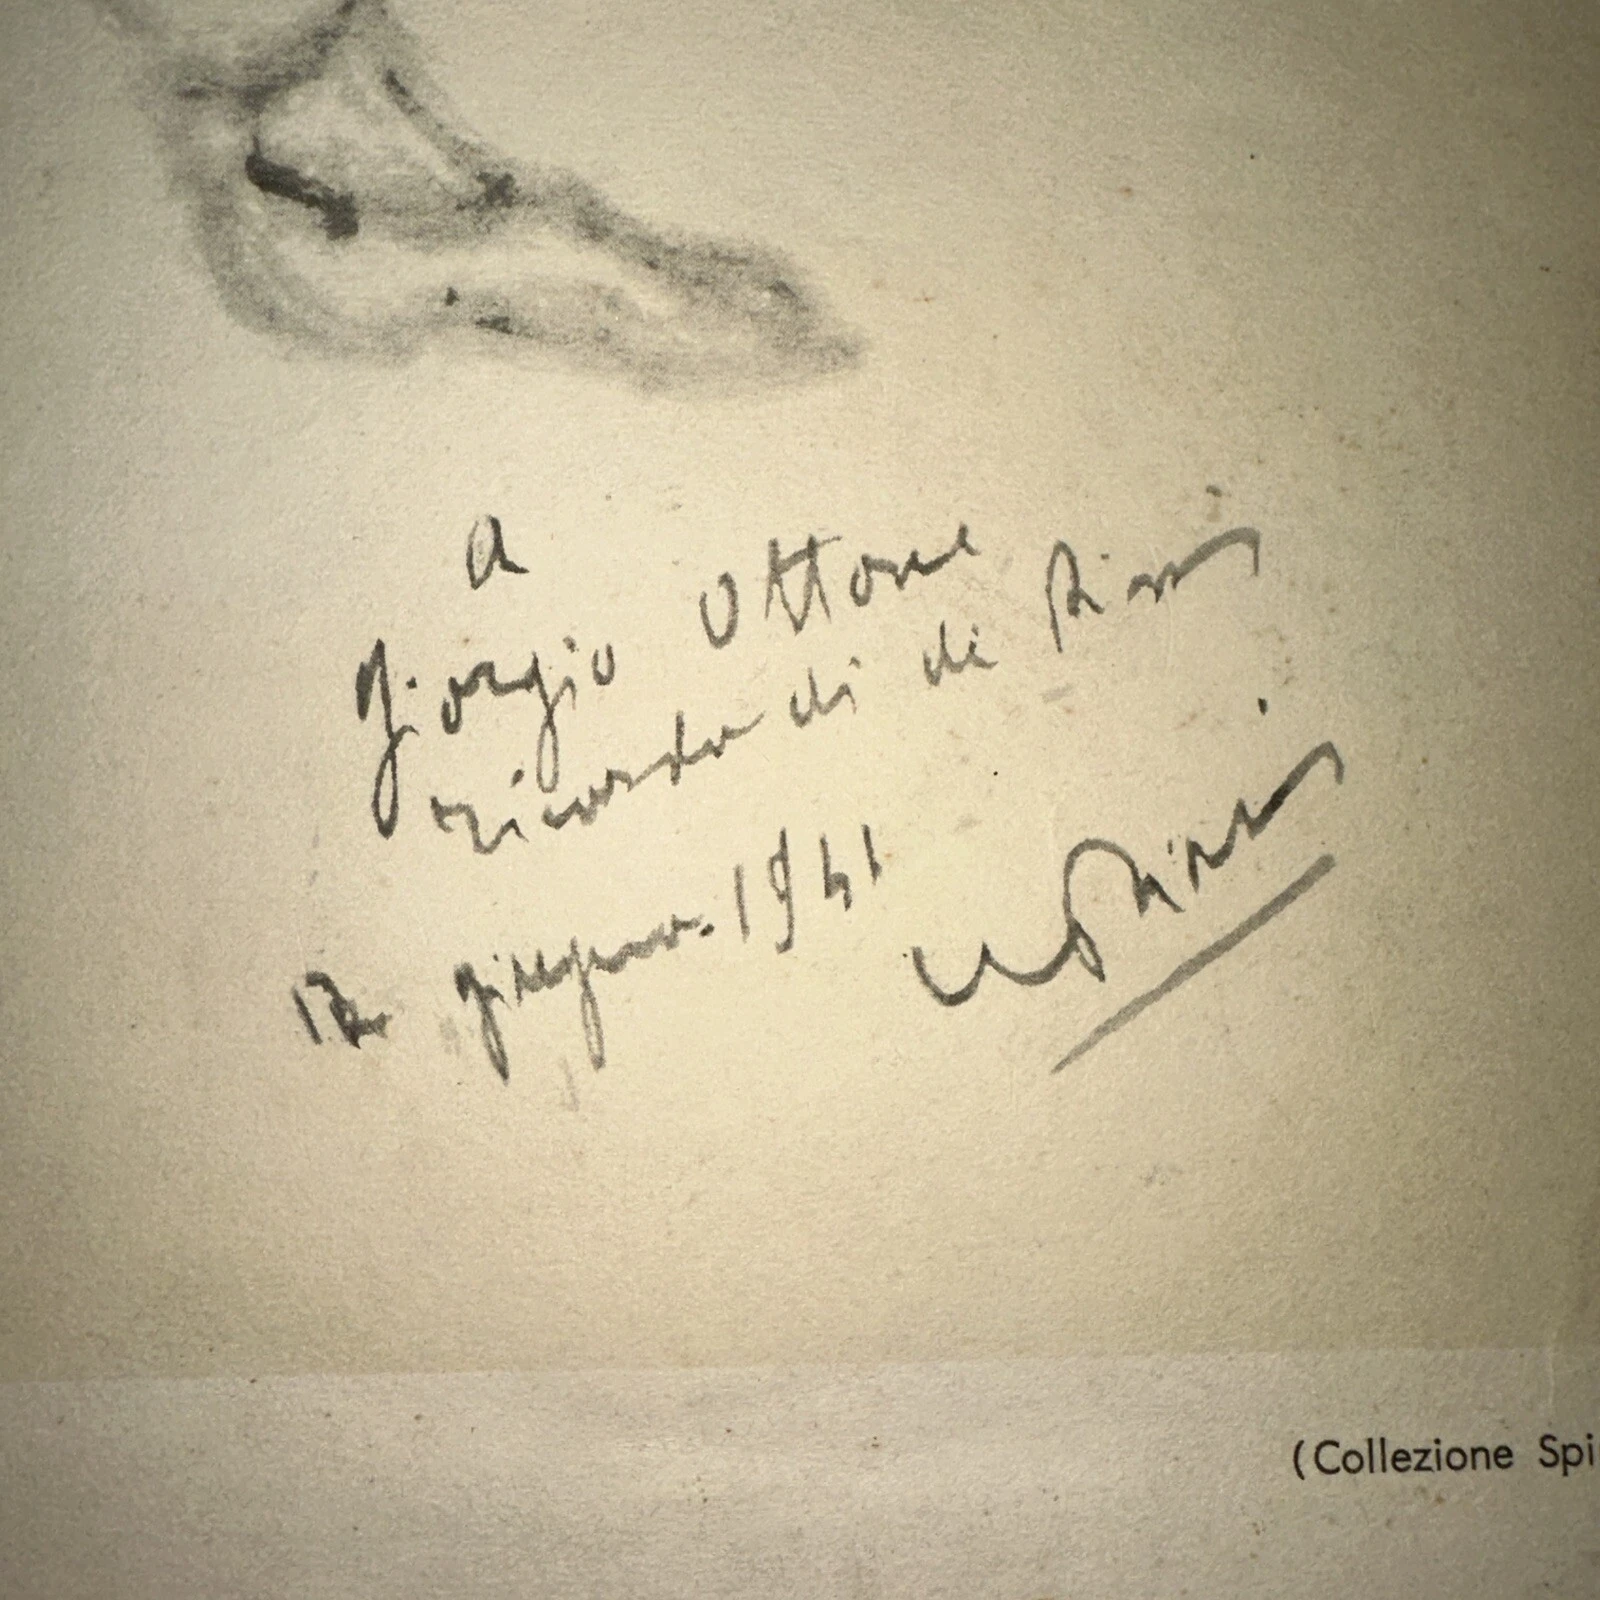 a
Giorgio Ottone
ricordo di di
12 giugno. 1941
(Collezione Spi